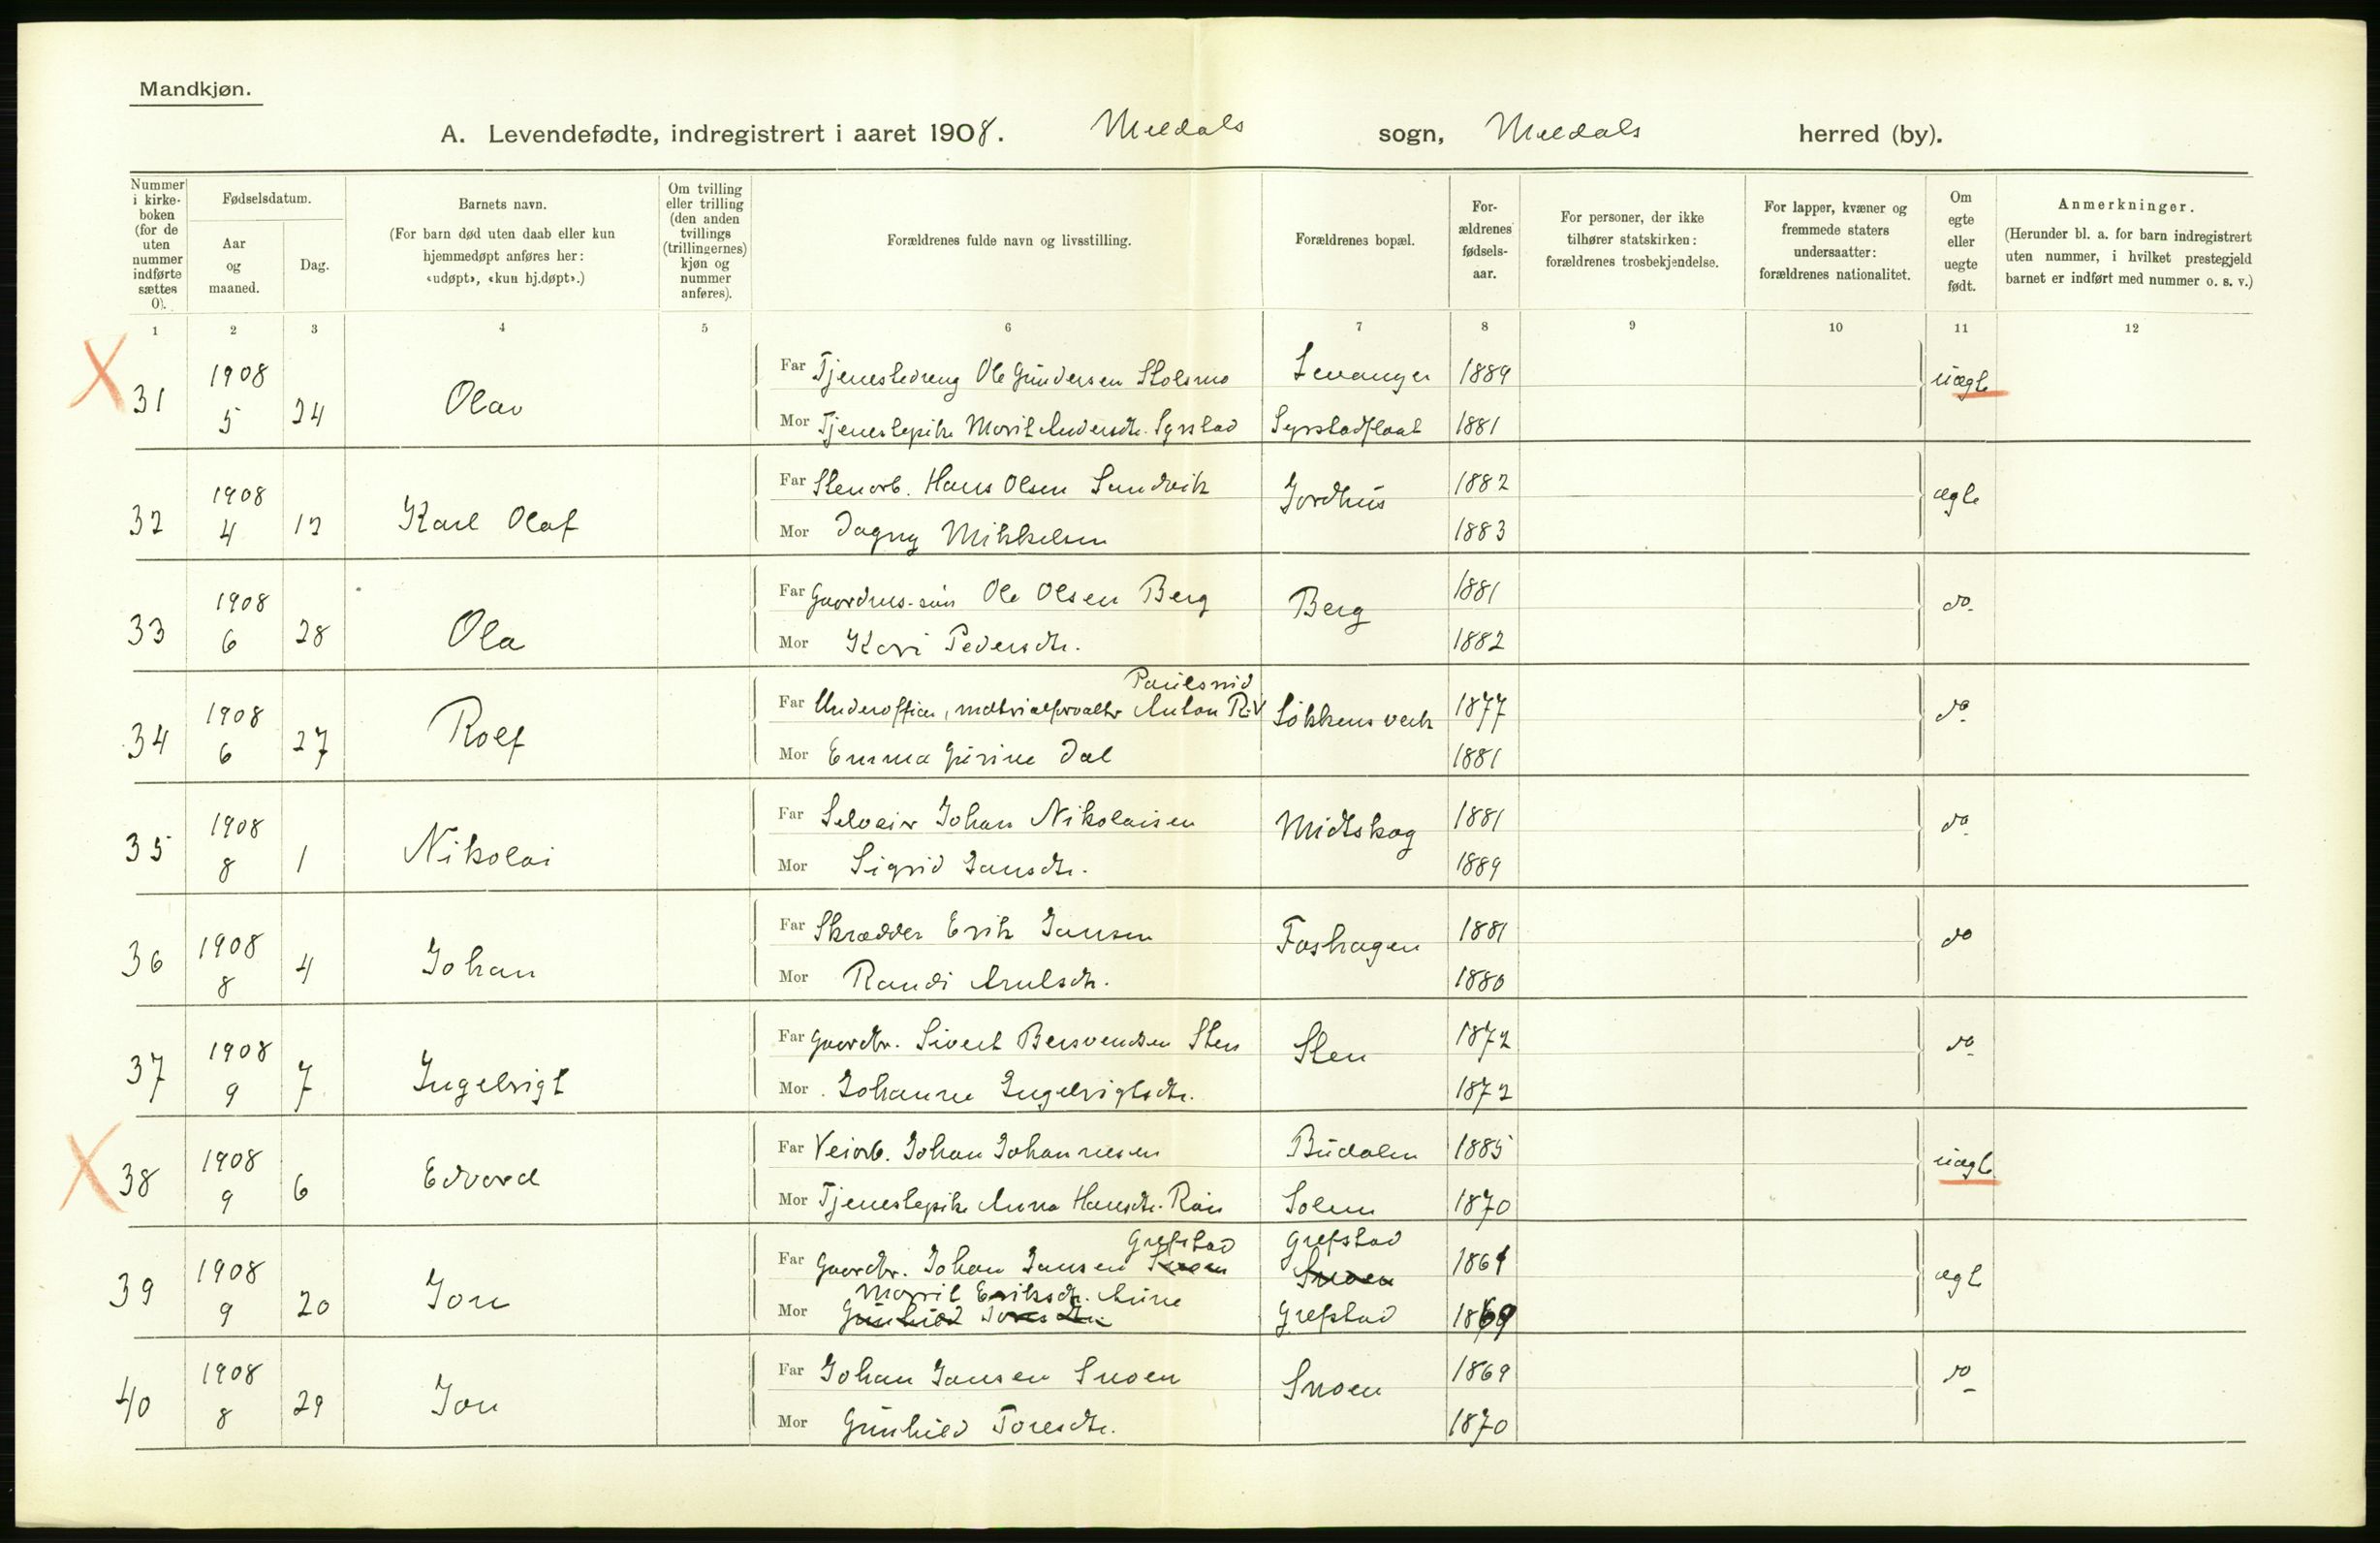 Mandkjøn.
A. Levendefødte, indregistrert i aaret 1908. Meldals sogn, Meldals herred (by).
Nummer i kirke-boken (for de uten nummer indførte sættes 0).
Fødselsdatum.
Aar og maaned.
Dag.
Barnets navn.
(For barn død uten daab eller kun hjemmedøpt anføres her: «udøpt», «kun hj.døpt».)
Om tvilling eller trilling (den anden tvillings (trillingernes) kjøn og nummer anføres).
Forældrenes fulde navn og livsstilling.
Forældrenes bopæl.
For-ældrenes fødsels-aar.
For personer, der ikke tilhører statskirken: forældrenes trosbekjendelse.
For lapper, kvæner og fremmede staters undersaatter: forældrenes nationalitet.
Om egte eller uegte født.
Anmerkninger.
(Herunder bl. a. for barn indregistrert uten nummer, i hvilket prestegjeld barnet er indført med nummer o. s. v.)
1 2 3 4 5 6 7 8 9 10 11 12
X 31 1908 5 24 Olav
Far Tjenestedreng Ole Gundersen Stolsmo Levanger 1889 uægte
Mor Tjenestepike Marit Andersdtr. Syrstad Syrstadfloat 1881
32 1908 4 12 Karl Olaf
Far Stenarb. Hans Olsen Sandvik Jordhus 1882 ægte
Mor Dagny Mikkelsen 1883
33 1908 6 28 Ola
Far Gaardms.-søn Ole Olsen Berg Berg 1881 do
Mor Kari Pedersdtr. 1882
34 1908 6 27 Rolf
Far Underofficer, matrialforvalter Anton Paulsrud Løkkens verk 1877 do
Mor Emma Gurine Dal 1881
35 1908 8 1 Nikolai
Far Selveier Johan Nikolaisen Midtskog 1881 do
Mor Sigrid Jansdtr. 1889
36 1908 8 4 Johan
Far Skrædder Erik Jansen Foshagen 1881 do
Mor Randi Arntsdtr. 1880
37 1908 9 7 Ingebrigt
Far Gaardbr. Sivert Bersvendsen Sten Sten 1872 do
Mor Johanne Ingebrigtsdtr. 1872
X 38 1908 9 6 Edvard
Far Veiarb. Johan Johannesen Budalen 1885 uægte
Mor Tjenestepike Anna Hansdtr. Solem 1870
39 1908 9 20 Jon
Far Gaardbr. Johan Jansen Snoen Grefstad Grefstad Snoen 1861 ægt
Mor Marit Eriksdtr. Aune Gunhild Toresdtr. Grefstad 1869
40 1908 8 29 Jon
Far Johan Jansen Snoen Snoen 1869 do
Mor Gunhild Toresdtr. 1870